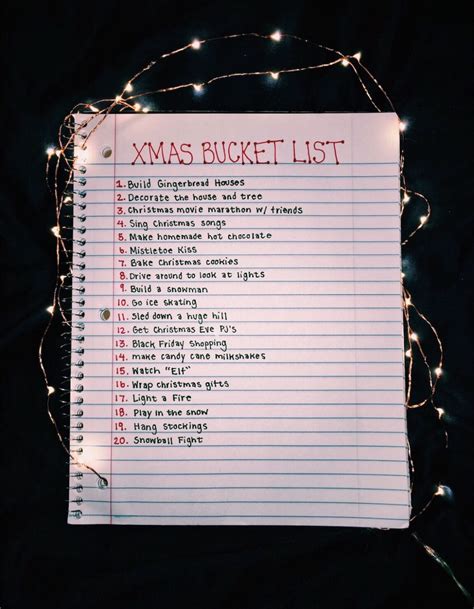 XMAS BUCKET LIST
1. Build Gingerbread Houses
2. Decorate the house and tree
3. Christmas movie marathon w/ friends
4. Sing Christmas songs
5. Make homemade hot chocolate
6. Mistletoe Kiss
7. Bake Christmas cookies
8. Drive around to look at lights
9. Build a snowman
10. Go ice skating
11. Sled down a huge hill
12. Get Christmas Eve PJ's
13. Black Friday shopping
14. make candy cane milkshakes
15. Watch "Elf"
16. Wrap christmas gifts
17. Light a Fire
18. Play in the snow
19. Hang stockings
20. Snowball Fight